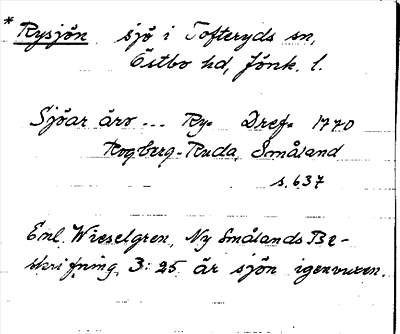 * Rysjön sjö i Tofteryds sn,
Östbo hd, Jönk. l.
Sjöar äro --- Ry= Dref= 1770
Rogberg-Ruda, Småland
s. 637
Enl. Wieselgren, Ny Smålands Be-
skrifning 3:25 är sjön igenvuxen.